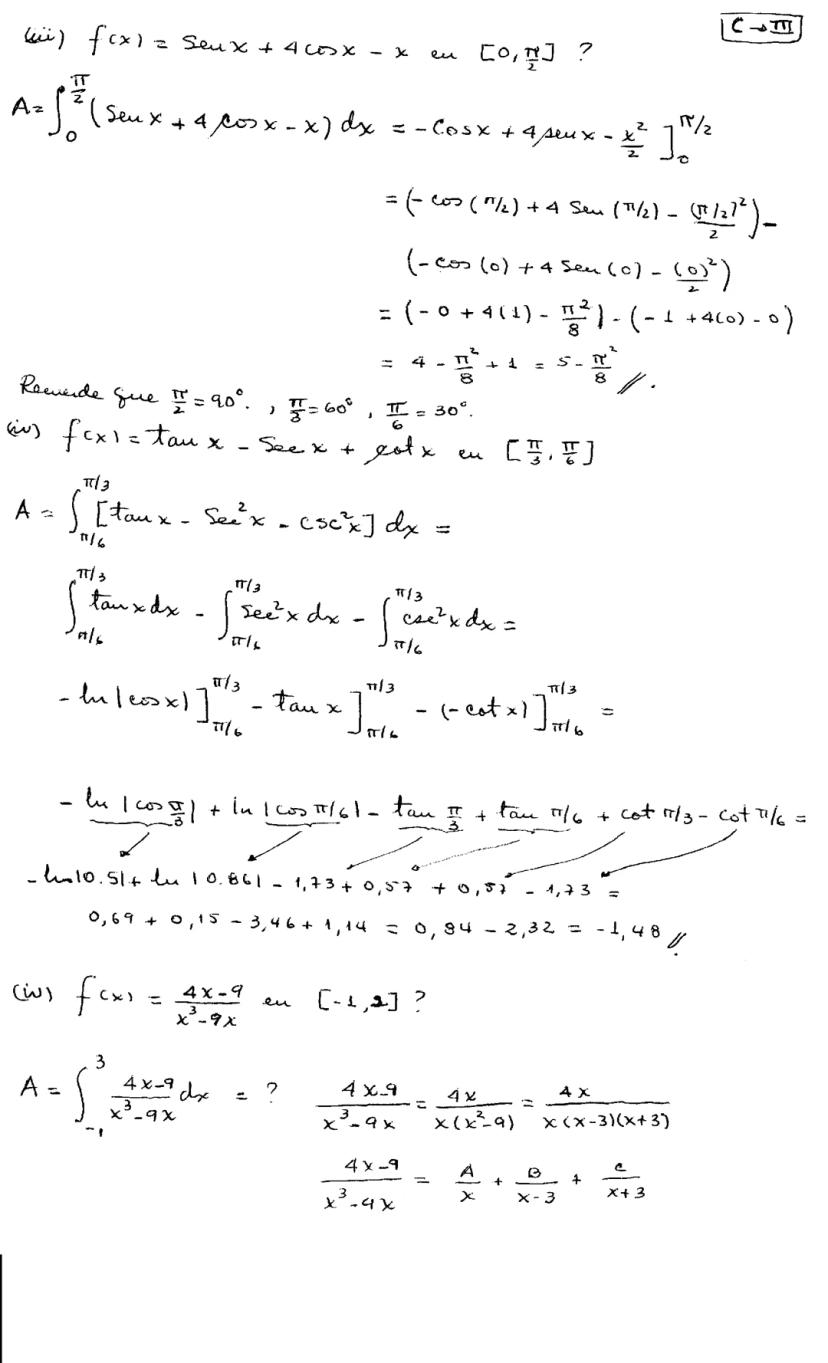 C→III
(iii) f(x) = Senx + 4cosx - x en [0, π/2] ?
A = ∫_0^{π/2} (Senx + 4cosx - x) dx = -Cosx + 4senx - x²/2 ]_0^{π/2}
= (-cos(π/2) + 4 Sen(π/2) - (π/2)²/2) -
(-cos(0) + 4Sen(0) - (0)²/2)
= (-0 + 4(1) - π²/8) - (-1 + 4(0) - 0)
= 4 - π²/8 + 1 = 5 - π²/8 //.
Recuerde que π/2 = 90°., π/3 = 60°, π/6 = 30°.
(iv) f(x) = tan x - Sec x + cot x en [π/3, π/6]
A = ∫_{π/6}^{π/3} [tanx - Sec²x - csc²x] dx =
∫_{π/6}^{π/3} tanx dx - ∫_{π/6}^{π/3} Sec²x dx - ∫_{π/6}^{π/3} csc²x dx =
-ln|cosx| ]_{π/6}^{π/3} - tan x ]_{π/6}^{π/3} - (-cot x) ]_{π/6}^{π/3} =
-ln|cos π/3| + ln|cos π/6| - tan π/3 + tan π/6 + cot π/3 - cot π/6 =
-ln|0.5| + ln|0.86| - 1,73 + 0,57 + 0,57 - 1,73 =
0,69 + 0,15 - 3,46 + 1,14 = 0,84 - 2,32 = -1,48 //.
(iv) f(x) = (4x-9)/(x³-9x) en [-1,2] ?
A = ∫_{-1}^{3} (4x-9)/(x³-9x) dx = ? (4x-9)/(x³-9x) = 4x/(x(x²-9)) = 4x/(x(x-3)(x+3))
(4x-9)/(x³-9x) = A/x + B/(x-3) + C/(x+3)